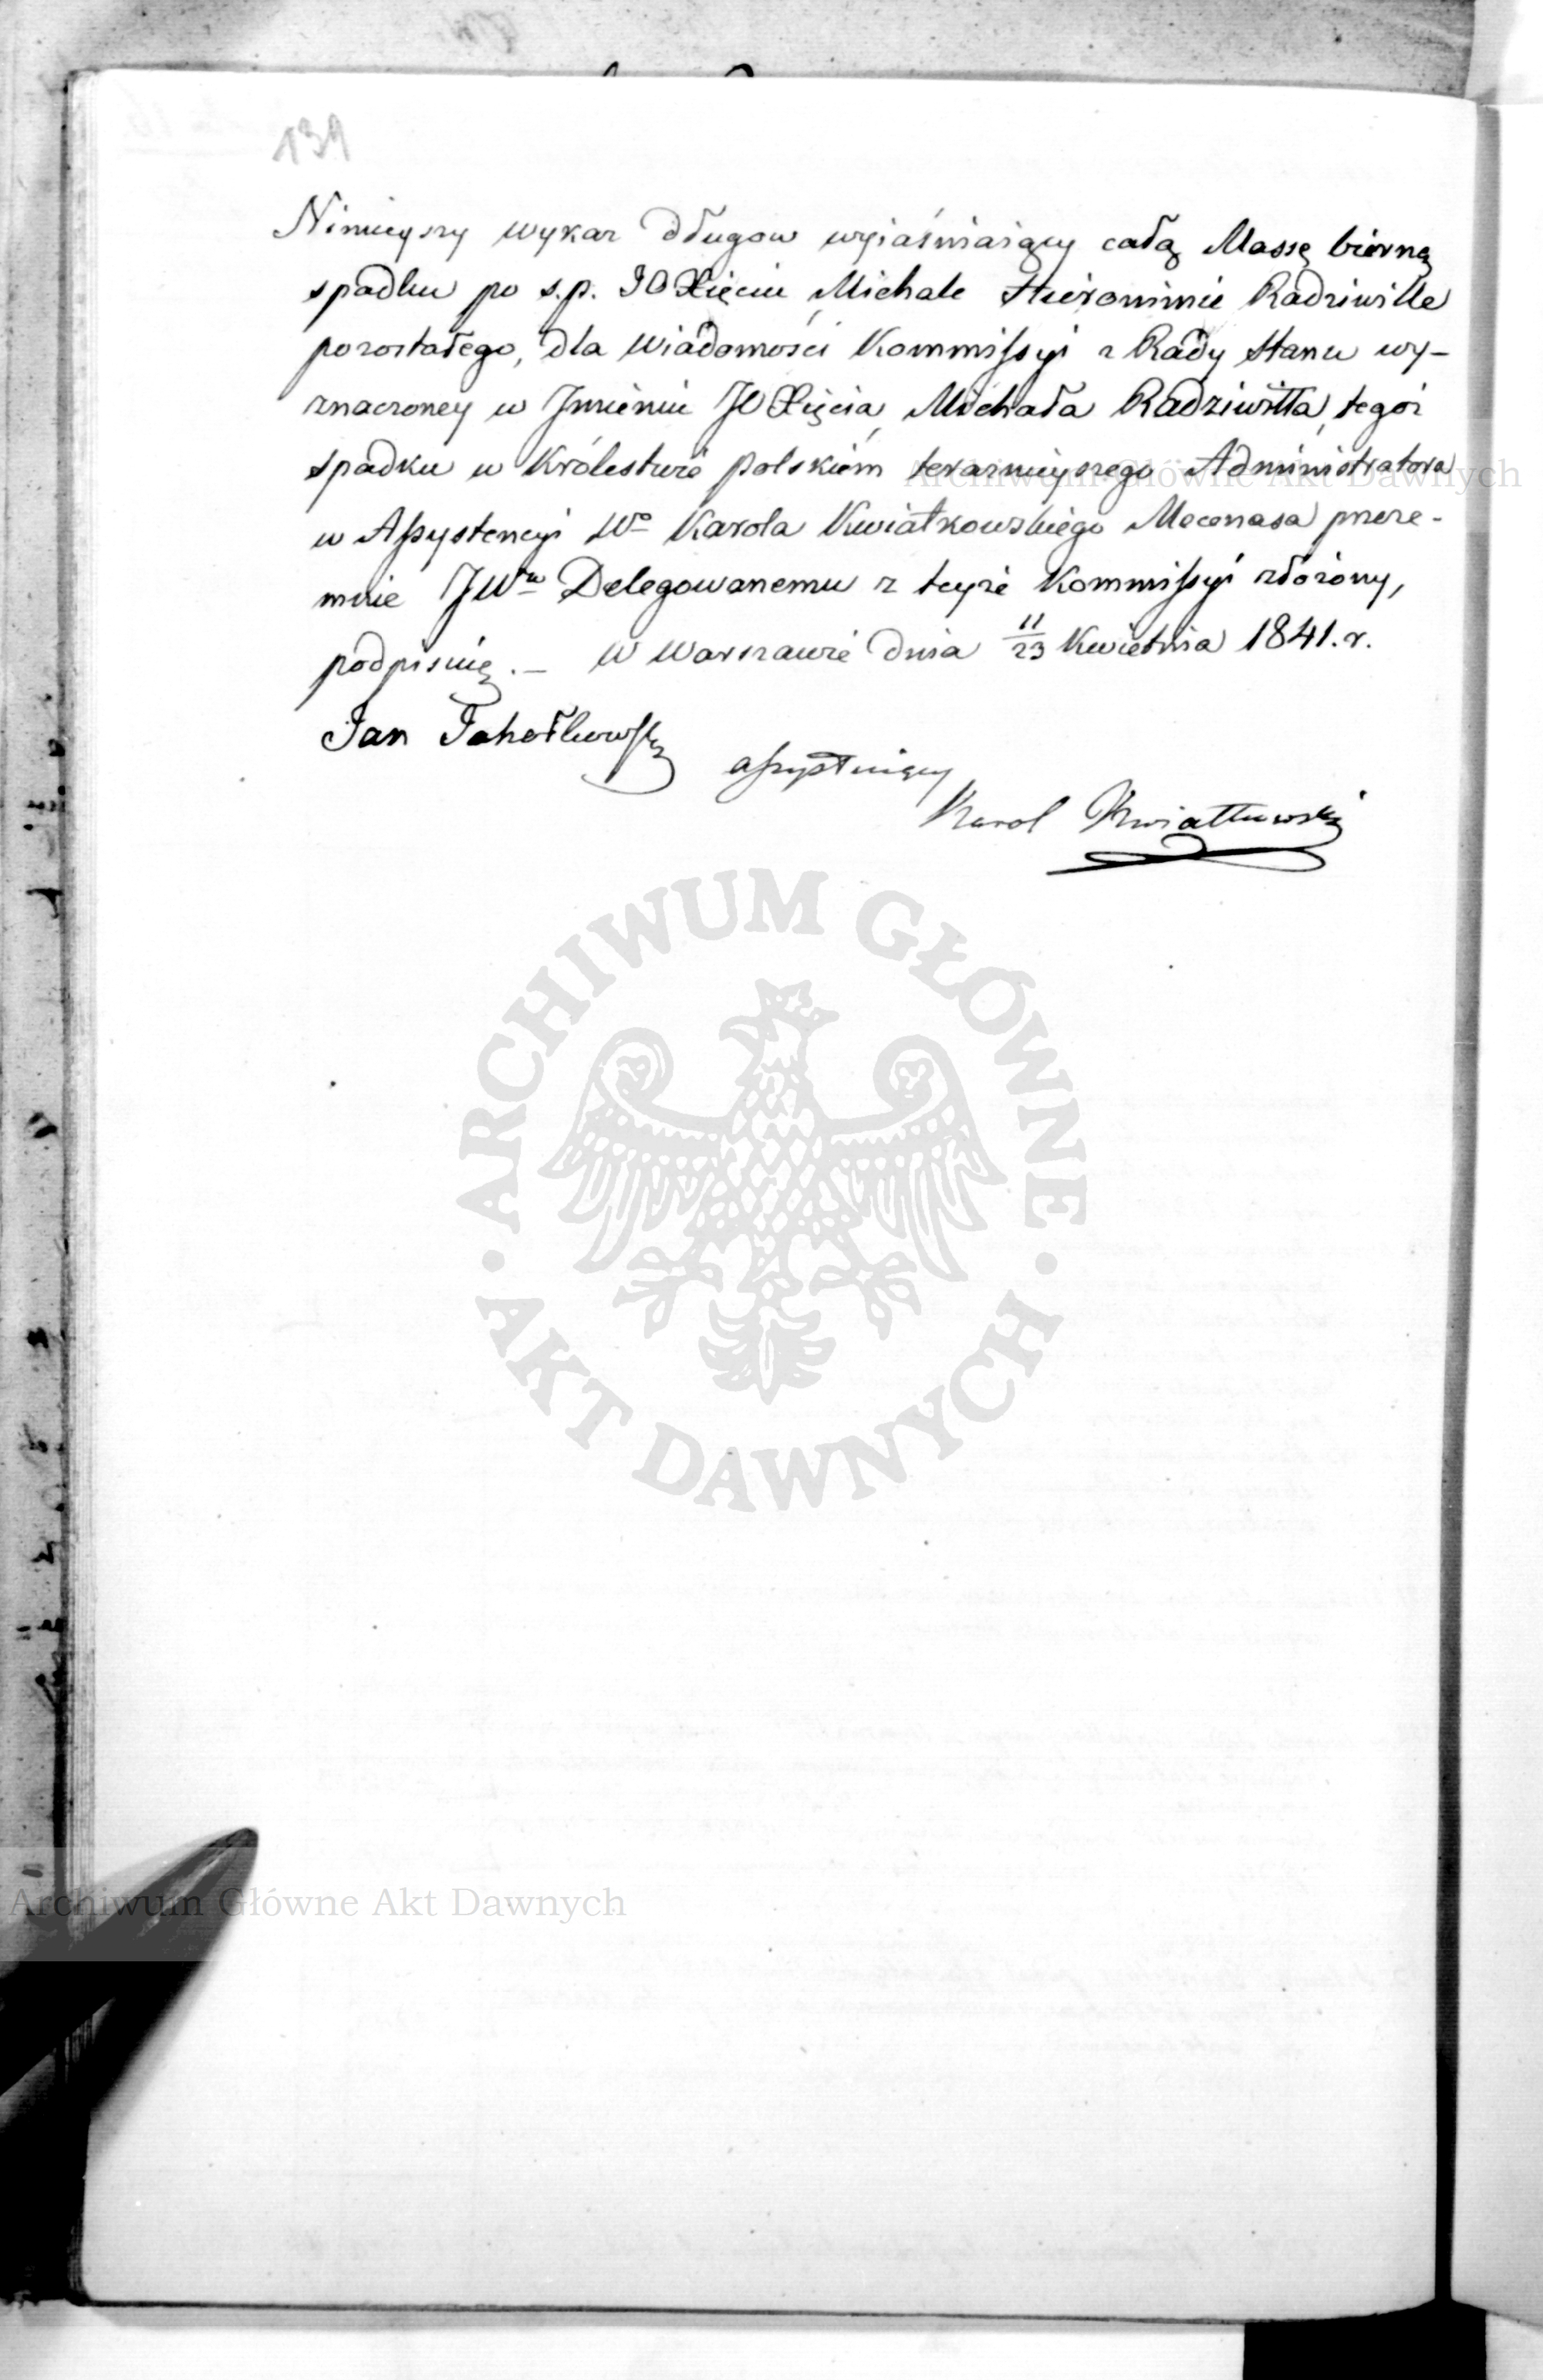 139
Ninieyszy wykaz długow wyiaśniaiący całą Massę bierną
spadku po s.p. JO Xięciu Michale Hieronimie Radziwille
pozostałego, dla wiadomości Kommissyi z Rady Stanu wy-
znaczoney w Jmieniu JO Xięcia Michała Radziwiłła, tegoż
spadku w Królestwie polskiém teraznieyszego Administratora
w Assystencyi Wo Karola Kwiatkowskiego Mecenasa przeze-
mnie JWmu Delegowanemu z teyże Kommissyi złożony,
podpisuię. — W Warszawie dnia 11/23 Kwietnia 1841. r.
Jan
assystuiący
Karol Kwiatkowski
ARCHIWUM GŁÓWNE
AKT DAWNYCH
Archiwum Główne Akt Dawnych
Archiwum Główne Akt Dawnych